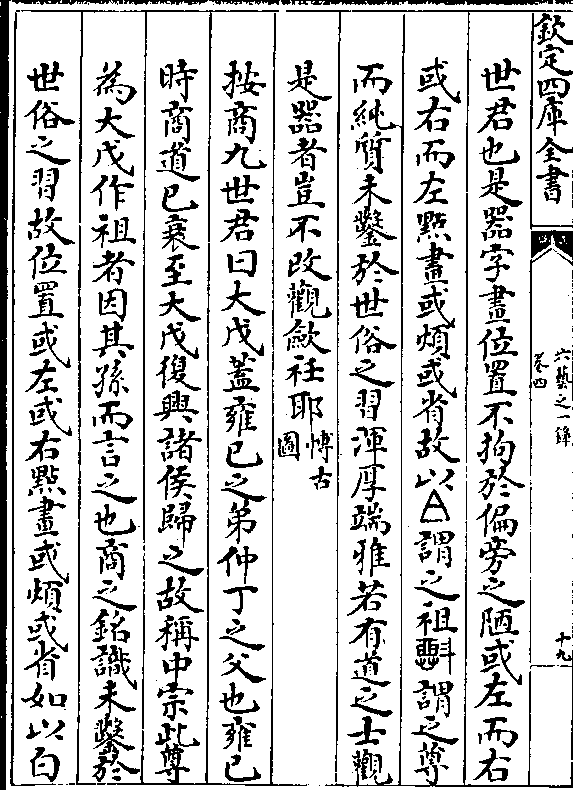 欽定四庫全書
六藝之一錄
卷四
十九
世君也是器字畫位置不拘於偏旁之陋或左而右
或右而左點畫或煩或省故以 謂之祖 謂之尊
而純質未鑿於世俗之習渾厚端雅若有道之士觀
是器者豈不改觀斂衽耶博古
圖
按商九世君曰大戊蓋雍已之弟仲丁之父也雍已
時商道已衰至大戊復興諸侯歸之故稱中宗此尊
為大戊作祖者因其孫而言之也商之銘識未鑿於
世俗之習故位置或左或右點畫或煩或省如以自